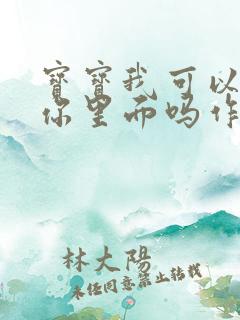 寶寶我可以
你里而吗作
林大陽
未经同意禁止转载